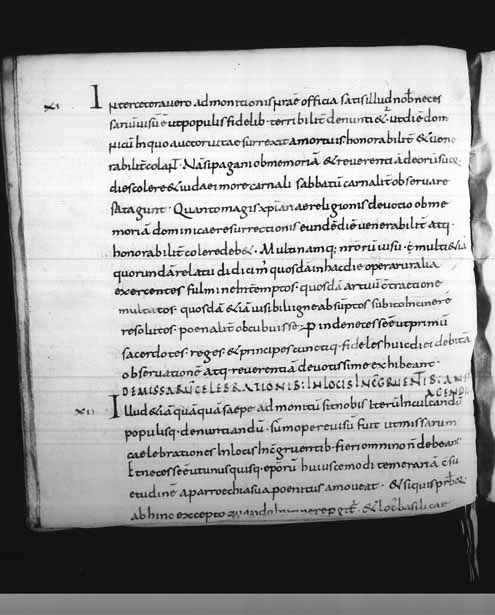 XI Inter cetera vero admonitionis vrae officia satis illud nob neces
sariu visu e ut populis fidelib terribilit denunti& ut die dom
nicu in quo auctor vitae surrexit a mortuis honorabilit & vene
rabilit col Na si pagani ob memoria & reverentia deoru suoru
dies colere & iudaei more carnali sabbatu carnalit observare
satagunt . Quanto magis xpiana religionis devotio ob me
moria dominicae resurrectionis eunde die venerabilit atq .
honorabilit colere deb& . Multi namq ; nroru visu . multi & ia
quorunda relatu didicim quosda in hac die operaruralia
exercentes fulmine int emptos . quosda artuu c tractione
multatos . quosda & ia visibili igne absuptos sub ic in cinere
resolutos . poenalit occubuisse . P inde necesse e ut primu
sacerdotes . reges . & principes cunctiq . fideles huic diei debita
observatione atq . reverentia devotissime exhibeant .
DE MISSARU CELEBRATIONIB : IN LOCIS INCGRUENTIB : A NN
AGENDI
XII Illud & ia qua qua saepe admonitu sit nobis iteru inculcandu
populisq . denuntiandu . sumopere visu fuit ut missarum
caelebrationes in locis incgruentib . fieri omnino n debeant
Et necesse e ut unusquisq . eporu huiuscemodi temeraria csu
etudine a parroechia sua poenitus amoveat . & si quis prbr
ab hinc excepto quando itinere pgit . & loc basilicae